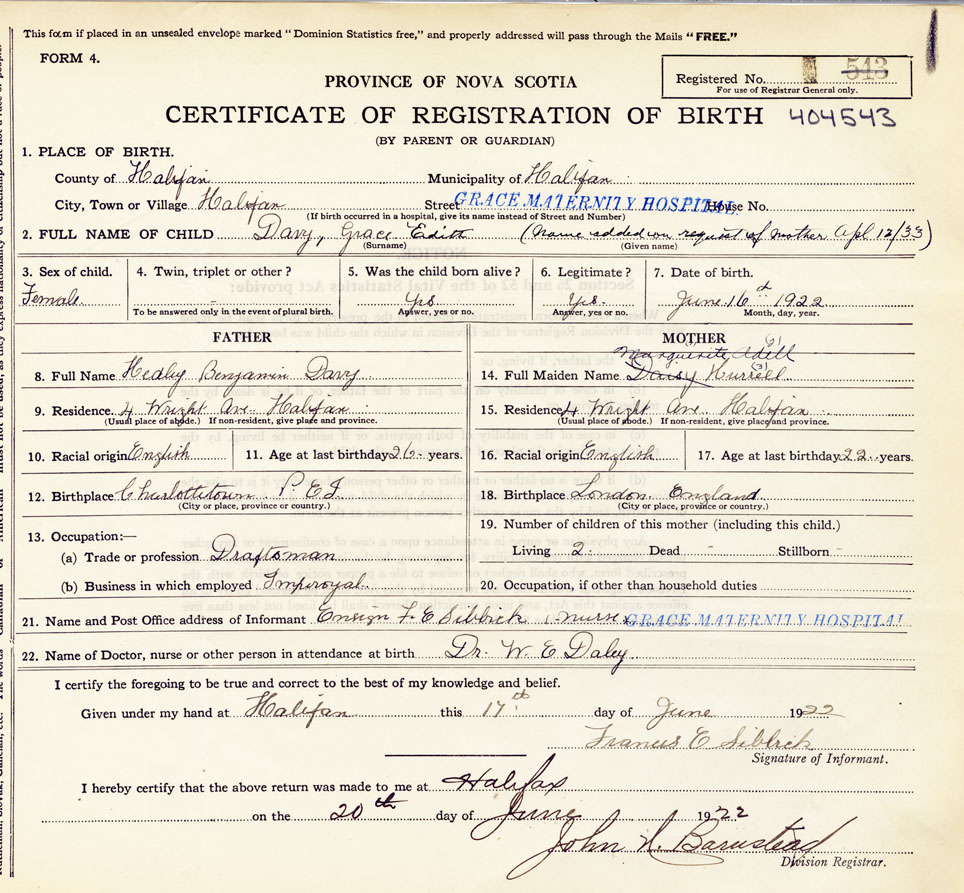 This form if placed in an unsealed envelope marked "Dominion Statistics free," and properly addressed will pass through the Mails "FREE."
FORM 4.
Registered No. 543
For use of Registrar General only.
PROVINCE OF NOVA SCOTIA
CERTIFICATE OF REGISTRATION OF BIRTH 404543
(BY PARENT OR GUARDIAN)
1. PLACE OF BIRTH.
County of Halifax Municipality of Halifax
City, Town or Village Halifax Street GRACE MATERNITY HOSPITAL House No.
(If birth occurred in a hospital, give its name instead of Street and Number)
2. FULL NAME OF CHILD Davy, Grace Edith (Name added on request of mother Apl 12/33)
(Surname) (Given name)
3. Sex of child. 4. Twin, triplet or other? 5. Was the child born alive? 6. Legitimate? 7. Date of birth.
Female - Yes Yes. June 16d 1922
To be answered only in the event of plural birth. Answer, yes or no. Answer, yes or no. Month, day, year.
FATHER MOTHER
Marguerite Adell
8. Full Name Hedley Benjamin Davy 14. Full Maiden Name Daisy Hurrell
9. Residence. 4 Wright Ave Halifax 15. Residence 4 Wright Ave Halifax
(Usual place of abode.) If non-resident, give place and province. (Usual place of abode.) If non-resident, give place and province.
10. Racial origin English 11. Age at last birthday 26 years. 16. Racial origin English 17. Age at last birthday 22 years.
12. Birthplace Charlottetown P.E.I 18. Birthplace London England
(City or place, province or country.) (City or place, province or country.)
13. Occupation:— 19. Number of children of this mother (including this child.)
(a) Trade or profession Draftsman Living 2 Dead - Stillborn -
(b) Business in which employed Imperoyal 20. Occupation, if other than household duties
21. Name and Post Office address of Informant Ensign F. E Sibbick nurse GRACE MATERNITY HOSPITAL
22. Name of Doctor, nurse or other person in attendance at birth Dr. W. E Daley
I certify the foregoing to be true and correct to the best of my knowledge and belief.
Given under my hand at Halifax this 17th day of June 1922
Frances E Sibbick
Signature of Informant.
I hereby certify that the above return was made to me at Halifax
on the 20th day of June 1922
John N. Barnstead
Division Registrar.